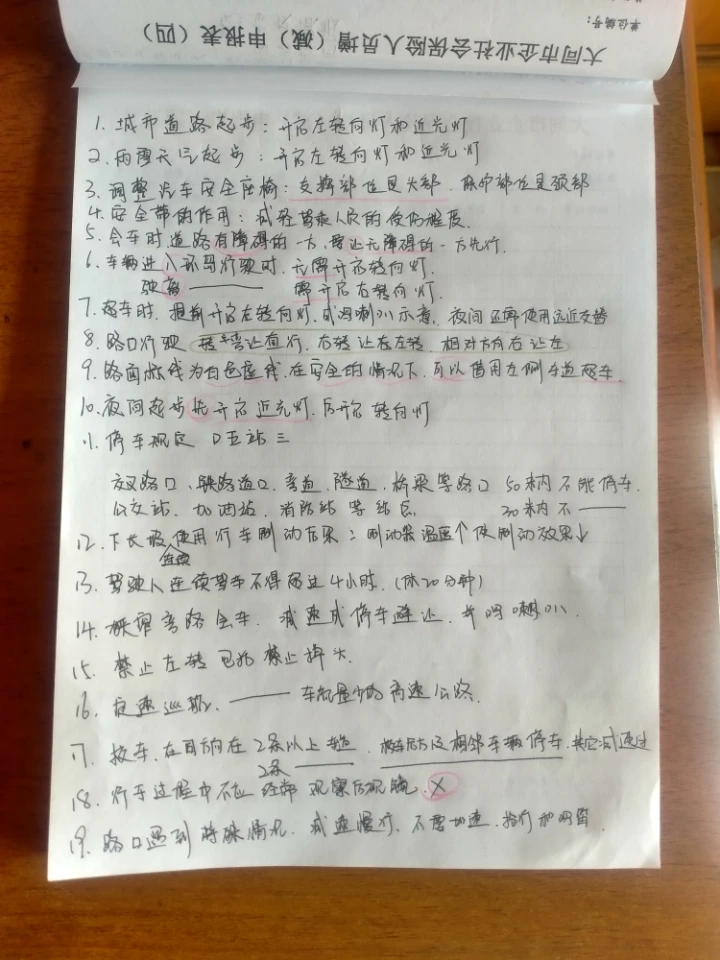 单位编号：
大同市企业社会保险人员增（减）申报表（四）
1. 城市道路起步：开启左转向灯和近光灯
2. 雨雪天气起步：开启左转向灯和近光灯
3. 调整汽车安全座椅：支撑部位是头部，保护部位是颈部
4. 安全带的作用：减轻驾乘人员的受伤程度。
5. 会车时，道路有障碍的一方，要让无障碍的一方先行.
6. 车辆进入环岛行驶时，无需开启转向灯.
驶离 —— 需开启右转向灯.
7. 超车时，提前开启左转向灯，或鸣喇叭示意，夜间还要使用远近交替
8. 路口行驶 转弯让直行，右转让左转，相对方向右让左
9. 路面标线为白色虚线，在安全的情况下，可以借用左侧车道超车
10. 夜间起步先开启近光灯，后开启转向灯
11. 停车规定 口五站三
交叉路口、铁路道口、弯道、隧道、桥梁等路口 50米内不能停车.
公交站、加油站、消防站等站点 30米内不——
12. 下长坡使用行车制动后果：制动器温度↑使制动效果↓
连续
13. 驾驶人连续驾车不得超过4小时.（休20分钟）
14. 狭窄弯路会车，减速或停车避让，并鸣喇叭.
15. 禁止左转包括禁止掉头.
16. 定速巡航，—— 车流量少的高速公路.
17. 校车，在同方向在2条以上车道，校车后方及相邻车辆停车，其它减速通过
2条 ——
18. 行车过程中不应经常观察后视镜. ×
19. 路口遇到特殊情况，减速慢行，不要加速，